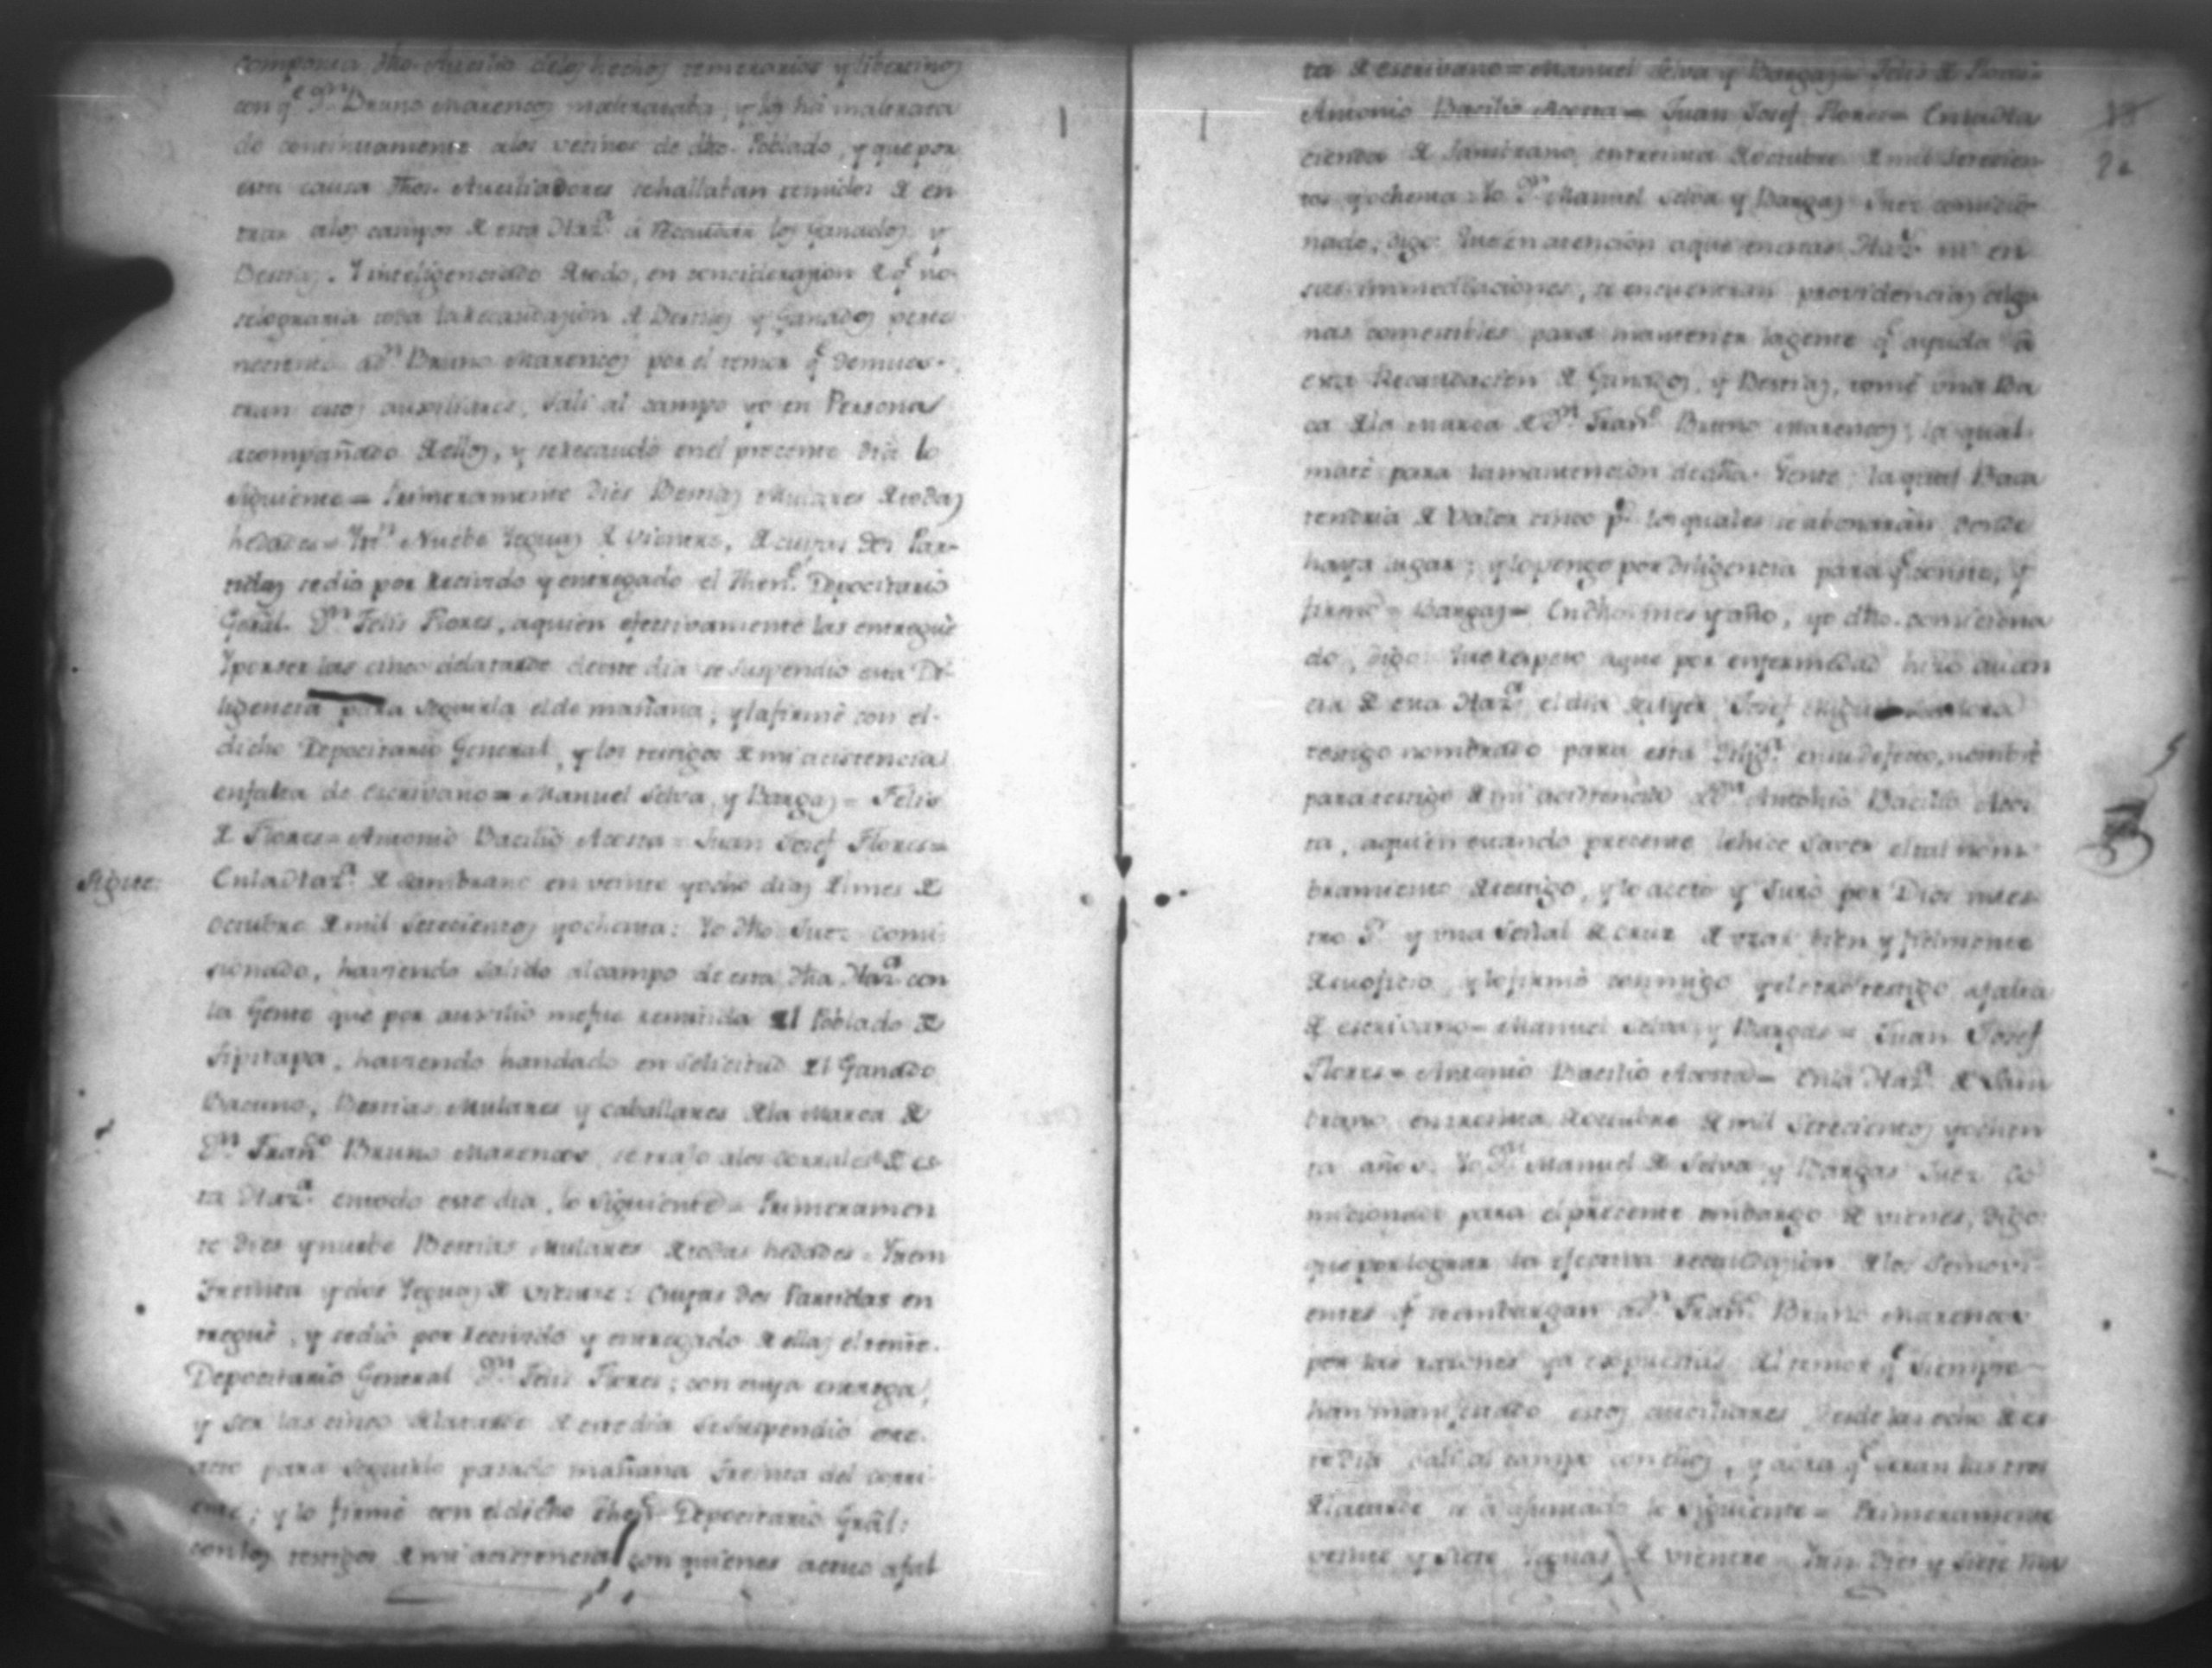 compania dho. Auxilio delos hechos temerarios y libertinos
con qe. Dn. Bruno Marencos maltrataba, y los há maltrata
do continuamente alos vecinos de dho. Poblado, y que por
esta causa dhos. Auxiliadores se hallaban temidos de en
trar alos campos de esta Haza. á Recaudar los Ganados y
Bestias. Y inteligenciado de todo, en concideracion de qe. no
se lograria toda la Recaudacion de Bestias y Ganados perte
neciente a Dn. Bruno Marencos por el temor qe. demues-
tran estos auxiliares, Salí al campo yo en Persona
acompañado de ellos, y se recaudó en el precente dia lo
siguiente = Primeramente dies Bestias Mulares de todas
hedades = Ytn. Nuebe Yeguas de vientre, de cuyas dos Par-
tidas se dio por Recivido y entregado el Thene. Depocitario
Genâl. Dn. Felis Flores, aquien efectivamente las entregué
Y por ser las cinco de la tarde de este dia se suspendio esta Di-
ligencia para seguirla el de mañana, y la firmé con el
dicho Depocitario General, y los testigos de mi acistencia
enfalta de escrivano = Manuel Selva, y Bargas = Felis
de Flores = Antonio Bacilio Acosta = Juan Josef Flores =
Sigue: En la Haza. de Sambrano en veinte y ocho dias del mes de
octubre de mil Setecientos y ochenta: Yo dho Juez comi
sionado, haviendo salido al campo de esta dha Haza. con
la Gente que por auxilio me fue remitida del Poblado de
Tipitapa, haviendo handado en solicitud del Ganado
Bacuno, Bestias Mulares y caballares de la Marca de
Dn. Franco. Bruno Marencos, se trajo alos corrales de es
ta Haza. en todo este dia, lo siguiente = Primeramen
te dies y nuebe Bestias Mulares de todas hedades = Ytem
Treinta y dos Yeguas de vientre: Cuyas dos Partidas en
tregué, y se dió por Recivido y entregado de ellas el tente.
Depocitario General Dn. Felis Flores; con cuya entrega,
y ser las cinco de la tarde de este dia se suspendió este
acto para seguirlo pasado mañana treinta del corri
ente; y lo firmé con el dicho thene. Depocitario Grâl:
con los testigos de mi acistencia con quienes actuo afal
ta de escrivano = Manuel Selva y Bargas = Felis de Flores =
Antonio Bacilio Acosta = Juan Josef Flores = En la Ha
cienda de Sambrano, en treinta de octubre de mil Setecien
tos y ochenta: Yo Dn. Manuel Selva y Bargas Juez comicio
nado, digo: Que en atencion aque en estas Haza. ni en
sus inmediaciones, se encuentran providencias algu
nas comestibles para mantener la gente qe. ayuda á
esta Recaudacion de Ganados, y Bestias, tomé una Ba
ca de la marca de Dn. Franco. Bruno Marencos; la qual
maté para la mantencion de dha. Gente; la qual Baca
tendria de Valor cinco ps. los quales se abonarán donde
haya lugar; y lo pongo por diligencia para qe. conste, y
firmé = Bargas = En dho. mes y año, yo dho. comiciona
do, digo: Que respeto aque por enfermedad hizo ausen
cia de esta Haza. el dia de Ayer Josef
testigo nombrado para esta Diliga. en su defecto, nombré
para testigo de mi acistencia a Dn. Antonio Bacilio Acos
ta, aquien estando precente le hice saver el tal nom
bramiento de testigo, y lo aceto y Juró por Dios nues
tro Sr. y una Señal de cruz de usar bien y fielmente
de su oficio, y lo firmó conmigo y el otro testigo afalta
de escrivano = Manuel Selva, y Bargas = Juan Josef
Flores = Antonio Bacilio Acosta = En la Haza. de Sam
brano, en treinta de octubre de mil Setecientos y ochen
ta años. Yo Dn. Manuel de Selva y Bargas Juez co
micionado para el precente embargo de vienes, digo:
que por lograr la efectiva recaudacion de los Semovi
entes qe. se embargan a Dn. Franco. Bruno Marencos
por las razones ya expuestas del temor qe. siempre
han manifestado estos auxiliares, desde las ocho de es
te dia salí al campo con ellos, y aora qe. seran las tres
de la tarde se á ajuntado lo siguiente = Primeramente
veinte y siete Yeguas de vientre = Ytn. Dies y Siete Mu